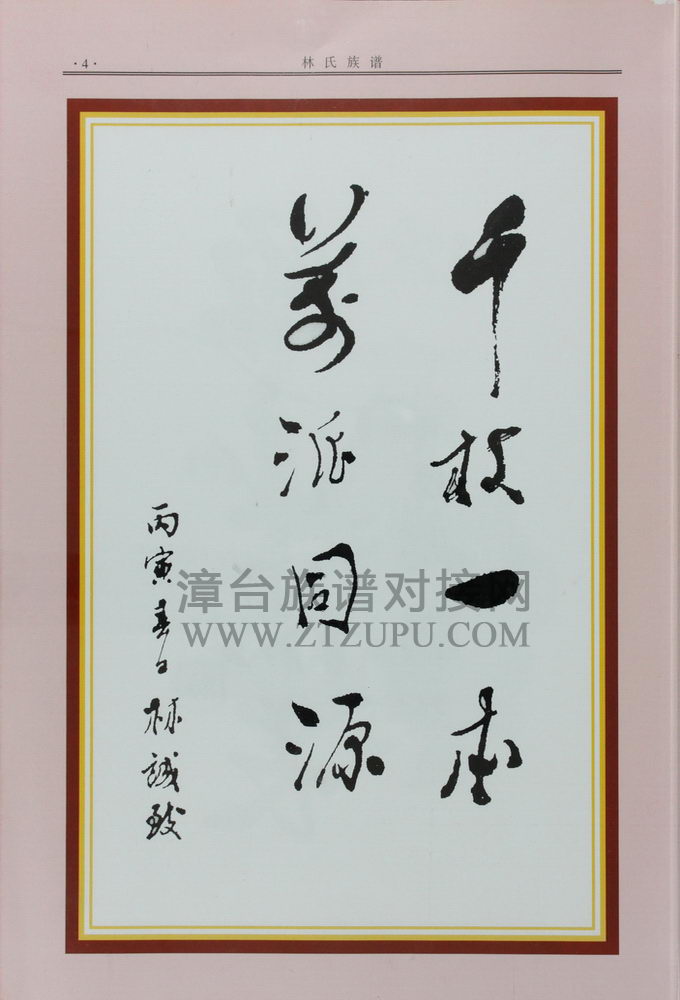 ·4·
林氏族谱
千枝一本
萬派同源
丙寅春日 林誠致
漳台族谱对接网
WWW.ZTZUPU.COM